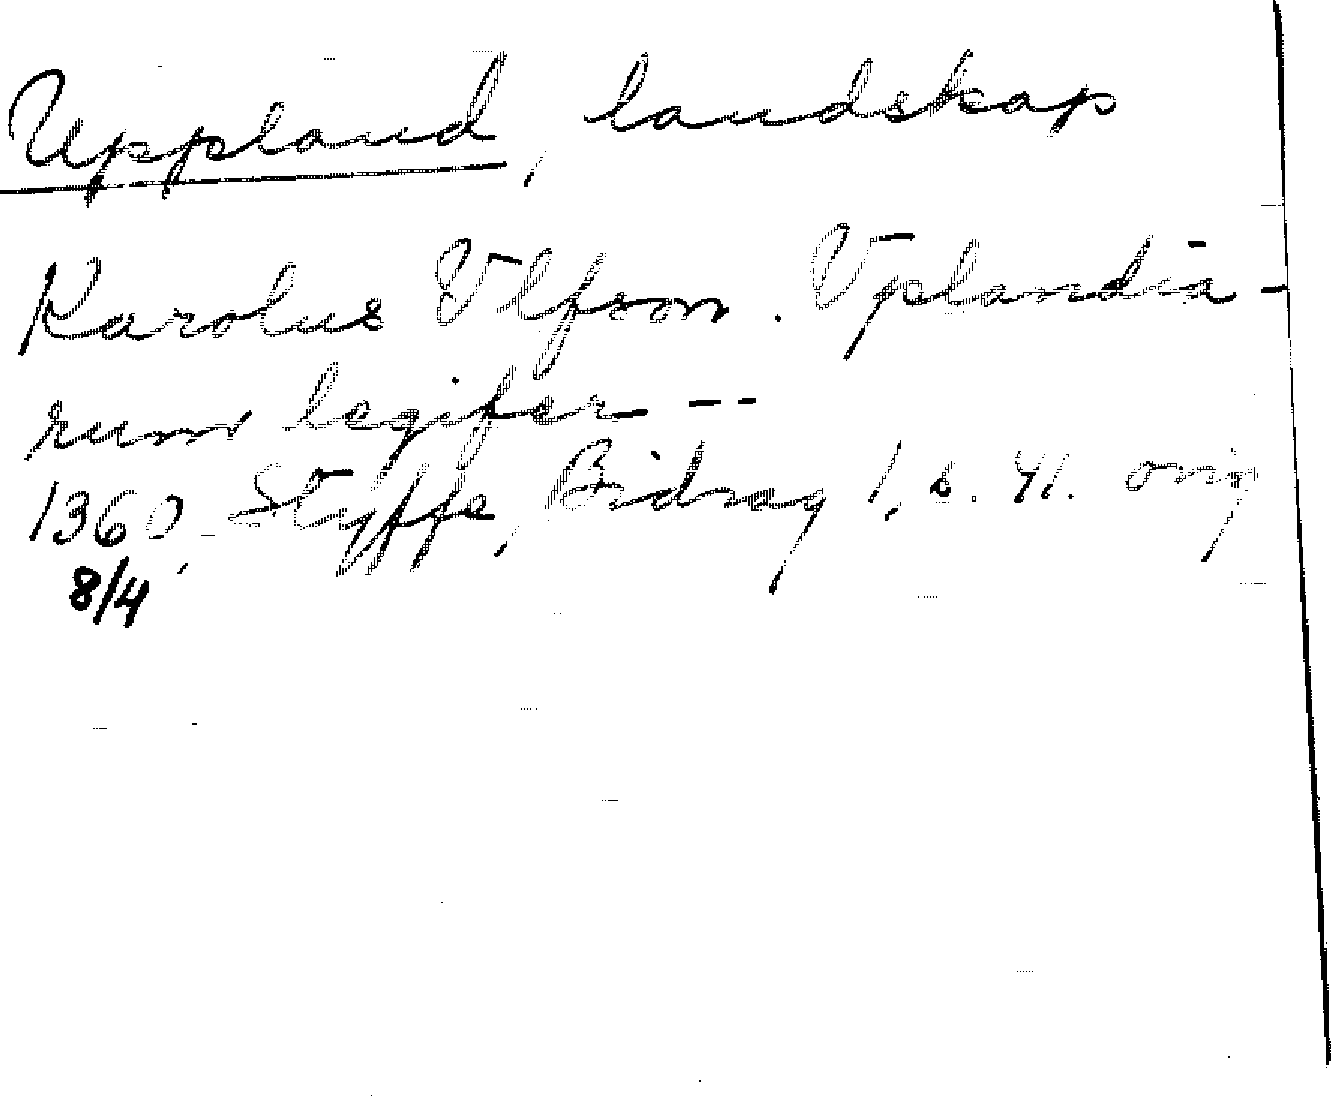 Uppland, landskap
Karolus Vlfson. Vplandia-
rum legifer ---
1360 Styffe, Bidrag 1, s. 41. orig
8/4